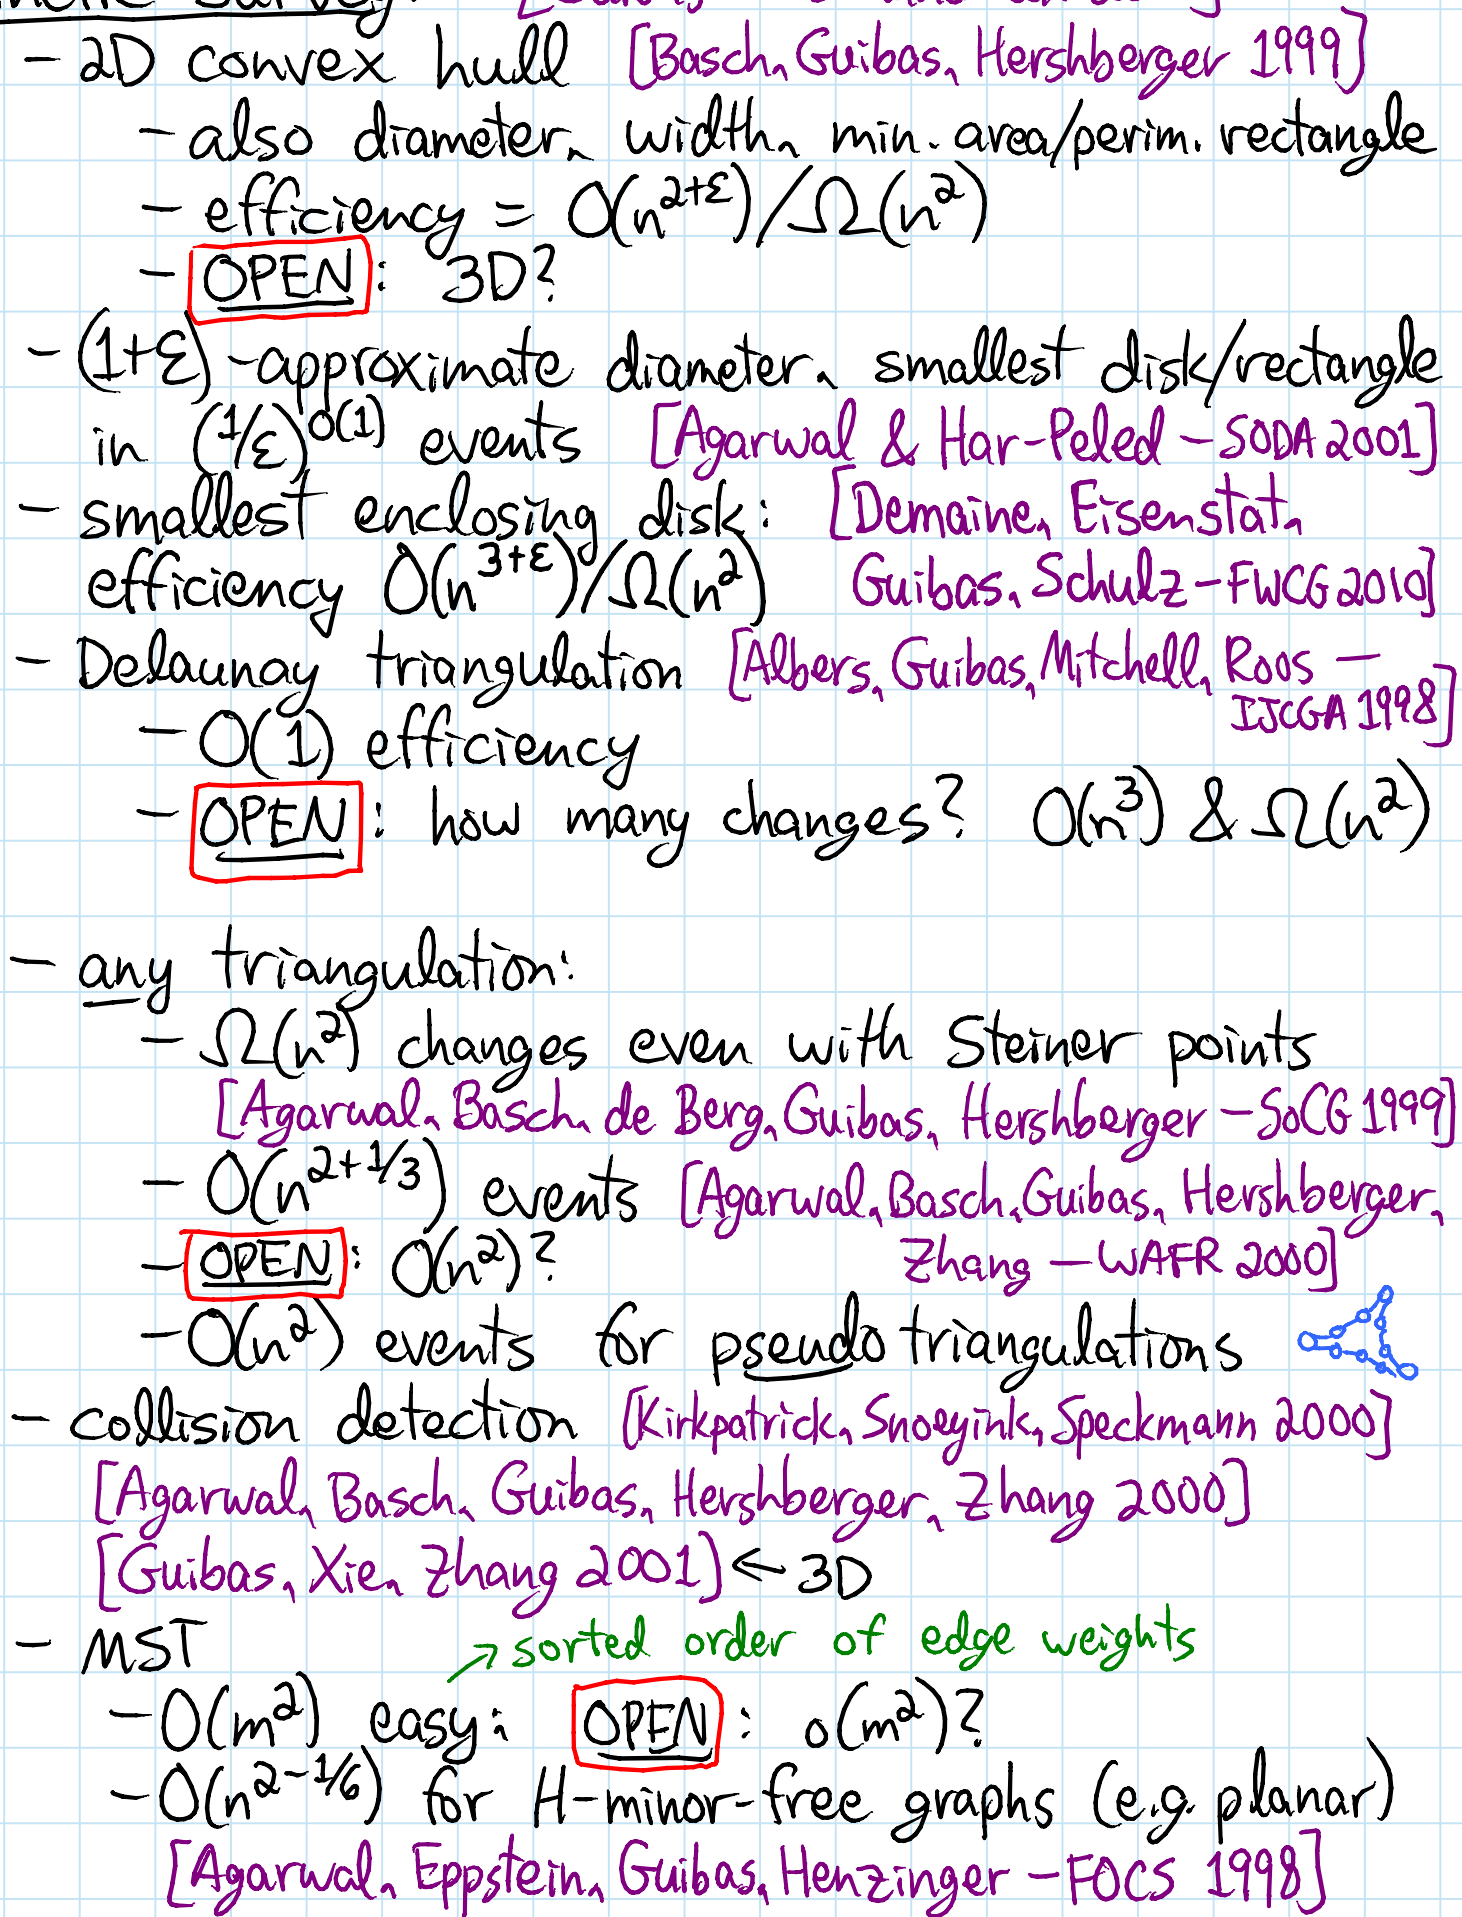 - 2D convex hull [Basch, Guibas, Hershberger 1999]
- also diameter, width, min. area/perim. rectangle
- efficiency = O(n^{2+ε})/Ω(n^2)
- OPEN: 3D?
- (1+ε)-approximate diameter, smallest disk/rectangle
in (1/ε)^{O(1)} events [Agarwal & Har-Peled - SODA 2001]
- smallest enclosing disk: [Demaine, Eisenstat,
efficiency O(n^{3+ε})/Ω(n^2) Guibas, Schulz - FWCG 2010]
- Delaunay triangulation [Albers, Guibas, Mitchell, Roos -
IJCGA 1998]
- O(1) efficiency
- OPEN: how many changes? O(n^3) & Ω(n^2)
- any triangulation:
- Ω(n^2) changes even with Steiner points
[Agarwal, Basch, de Berg, Guibas, Hershberger - SoCG 1999]
- O(n^{2+1/3}) events [Agarwal, Basch, Guibas, Hershberger,
Zhang - WAFR 2000]
- OPEN: O(n^2)?
- O(n^2) events for pseudo triangulations
- collision detection [Kirkpatrick, Snoeyink, Speckmann 2000]
[Agarwal, Basch, Guibas, Hershberger, Zhang 2000]
[Guibas, Xie, Zhang 2001] ← 3D
- MST → sorted order of edge weights
- O(m^2) easy; OPEN: o(m^2)?
- O(n^{2-1/6}) for H-minor-free graphs (e.g. planar)
[Agarwal, Eppstein, Guibas, Henzinger - FOCS 1998]